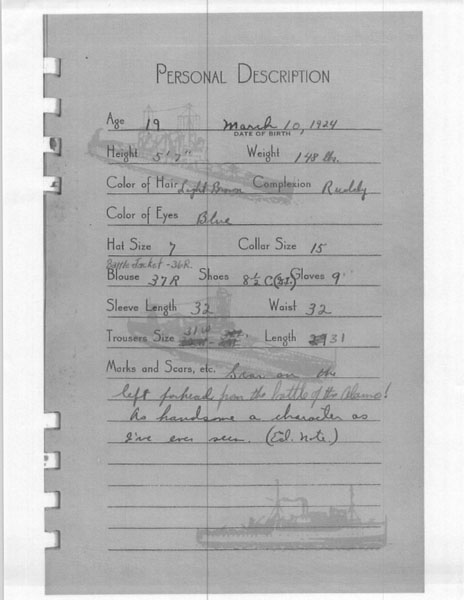 PERSONAL DESCRIPTION
Age 19 March 10, 1924
DATE OF BIRTH
Height 5'7" Weight 148 lbs.
Color of Hair Light Brown Complexion Ruddy
Color of Eyes Blue
Hat Size 7 Collar Size 15
Battle Jacket - 36R.
Blouse 37R Shoes 8½ C Gloves 9
Sleeve Length 32 Waist 32
Trousers Size 31 Length 31
Marks and Scars, etc. Scar on the
left forhead from the battle of the Alamo!
As handsome a character as
I've ever seen. (Ed. Note.)